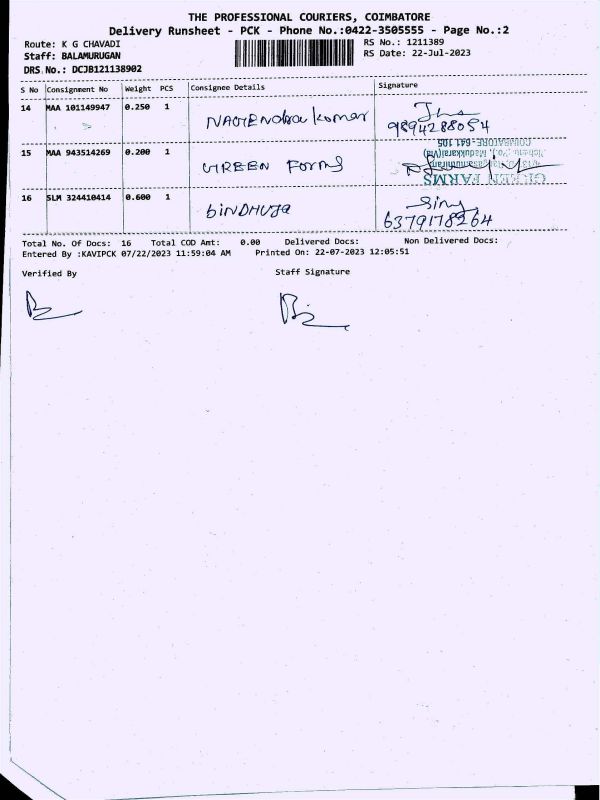 THE PROFESSIONAL COURIERS, COIMBATORE
Delivery Runsheet - PCK - Phone No.:0422-3505555 - Page No.:2
Route: K G CHAVADI
RS No.: 1211389
Staff: BALAMURUGAN
RS Date: 22-Jul-2023
DRS No.: DCJB121138902
S No Consignment No Weight PCS Consignee Details Signature
14 MAA 101149947 0.250 1 NAGENdra kumar
9894288054
15 MAA 943514269 0.200 1 GREEN Forms
GREEN FARMS
Madukkarai(Via)
COIMBATORE-641 105
16 SLM 324410414 0.600 1 binDHUja
6379178264
Total No. Of Docs: 16 Total COD Amt: 0.00 Delivered Docs: Non Delivered Docs:
Entered By :KAVIPCK 07/22/2023 11:59:04 AM Printed On: 22-07-2023 12:05:51
Verified By Staff Signature